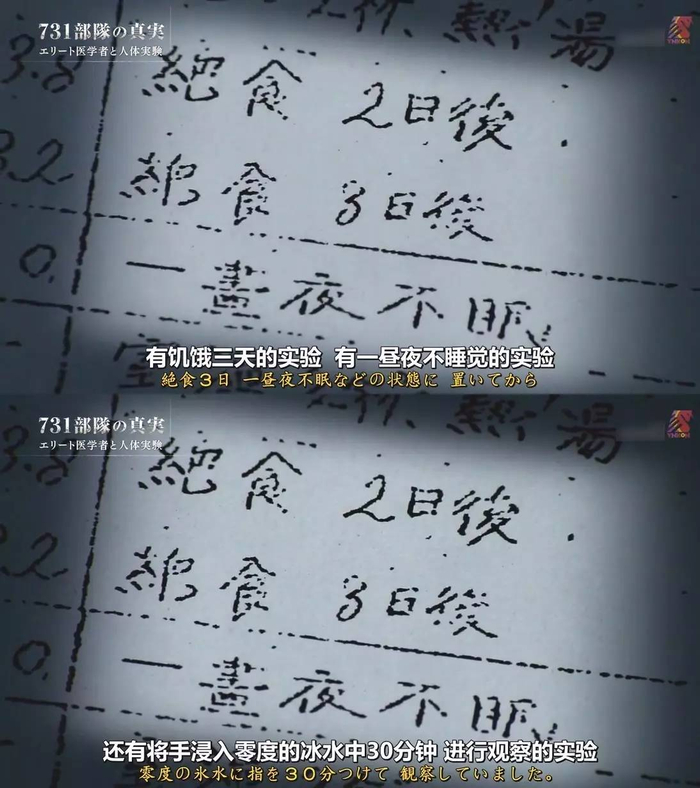 731部隊の真実
エリート医学者と人体実験
熱湯
3.8 絶食 2日後
3.2 絶食 3日後
0. 一晝夜不眠
有饥饿三天的实验 有一昼夜不睡觉的实验
絶食３日 一昼夜不眠などの状態に 置いてから
731部隊の真実
エリート医学者と人体実験
湯
3.8 絶食 2日後
3.2 絶食 3日後
0. 一晝夜不眠
还有将手浸入零度的冰水中30分钟 进行观察的实验
零度の氷水に指を３０分つけて 観察していました。